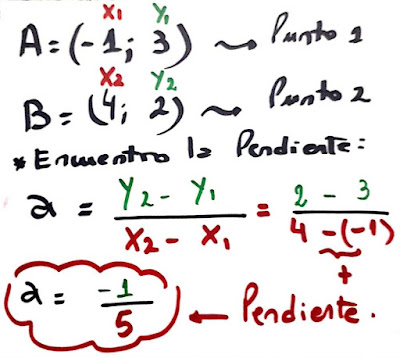 x1 y1
A = (-1; 3) ⤳ Punto 1
x2 y2
B = (4; 2) ⤳ Punto 2
* Encuentro la Pendiente:
a = y2 - y1 / x2 - x1 = 2 - 3 / 4 - (-1)
+
a = -1 / 5 ← Pendiente.